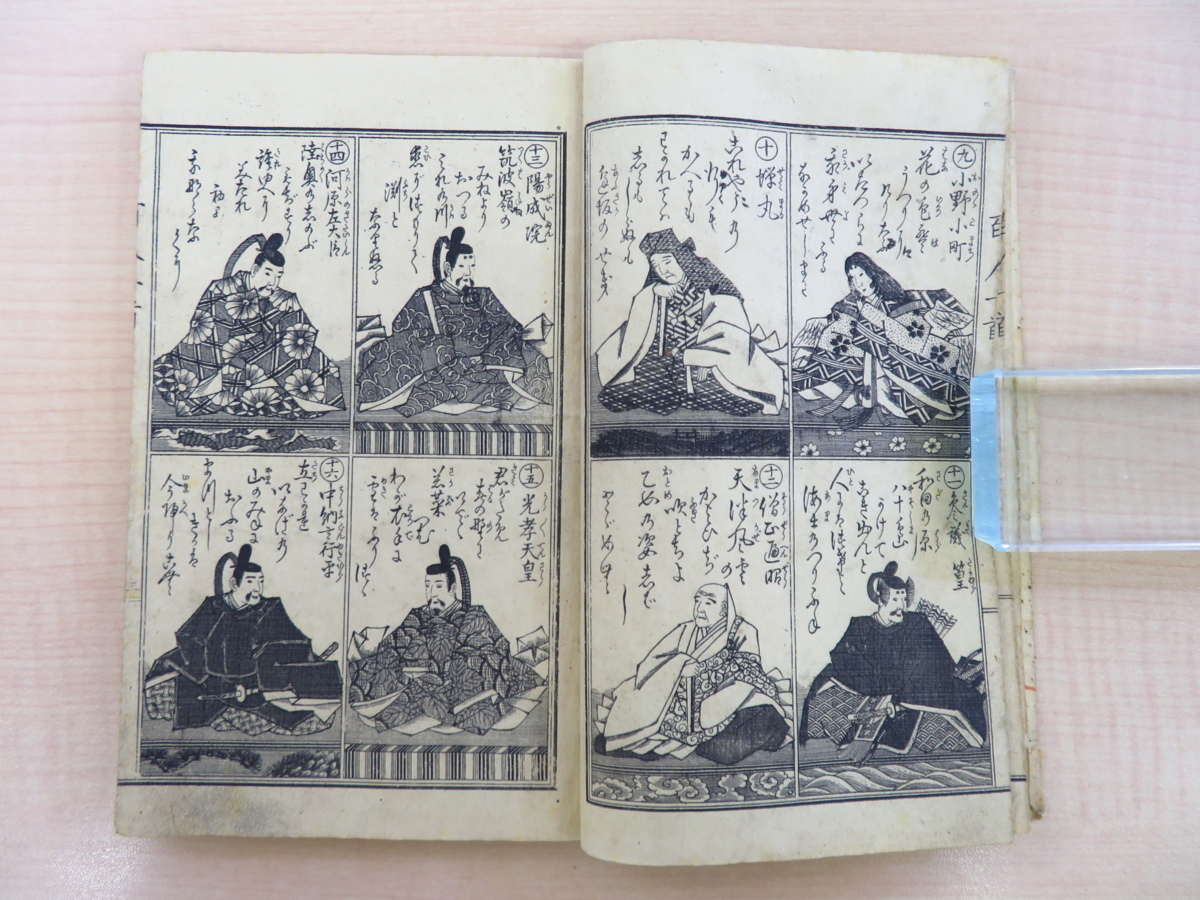 九
小野小町
花の色は
うつりに
けりな
いたづらに
我身世に
ふる
ながめせしまに
十
蝉丸
これやこの
行も
かへるも
わかれては
しるもしらぬも
逢坂のせき
十一
参議
篁
和田の原
八十島
かけて
こぎ出ぬと
人にはつげよ
海士のつりふね
十二
僧正遍昭
天津風雲の
かよひぢ
吹とぢよ
乙女の姿
しばし
とゞめむ
十三
陽成院
筑波嶺の
みねより
おつる
みなの川
恋ぞつもりて
淵と
なりぬる
十四
河原左大臣
陸奥のしのぶ
もぢずり
誰ゆへに
みだれ
初にし
我ならなくに
十五
光孝天皇
君がため
春の野に
いでゝ
若菜つむ
わが衣手に
雪はふりつゝ
十六
中納言行平
立わかれ
いなばの
山のみねに
おふる
まつとし
きかば
今帰りこむ
百人一首